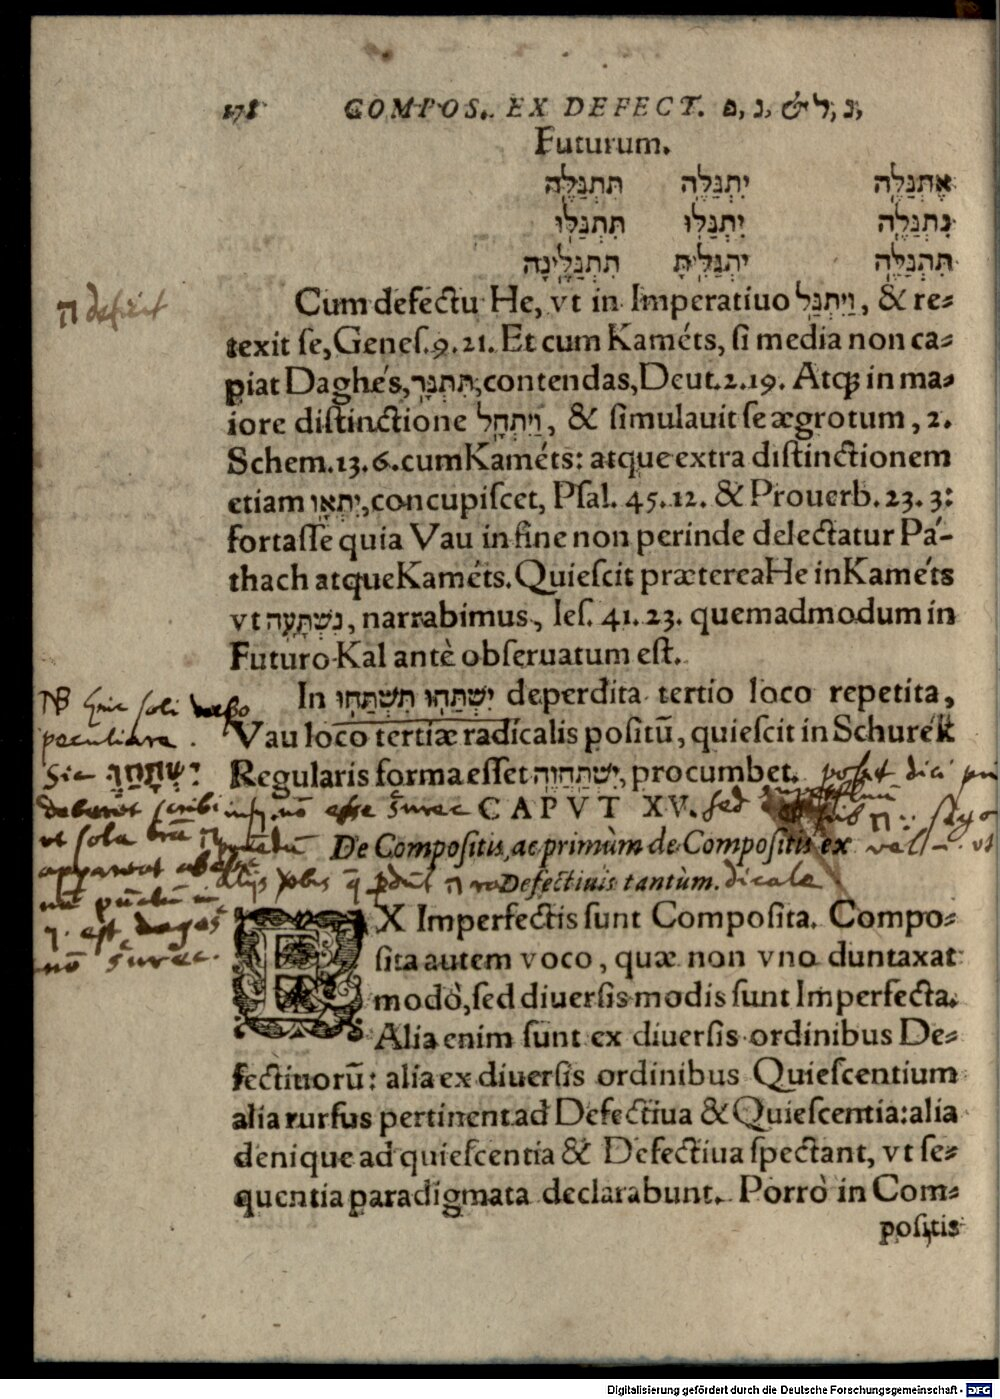 178 COMPOS. EX DEFECT. נ, ל, שׁ, נ, פ
Futurum.
אֶתְגַּלֶּה יִתְגַּלֶּה תִּתְגַּלֶּה
נִתְגַּלֶּה יִתְגַּלּוּ תִּתְגַּלּוּ
תִּתְגַּלֶּינָה
ה deficit
Cum defectu He, vt in Imperatiuo וַיִּתְגַּל, & re-
texit se, Genes. 9. 21. Et cum Kaméts, si media non ca-
piat Daghés, תִּתְגָּר, contendas, Deut. 2. 19. Atq; in ma-
iore distinctione וַיִּתְחָל, & simulauit se ægrotum, 2.
Schem. 13. 6. cum Kaméts: atque extra distinctionem
etiam יִתְאָו, concupiscet, Psal. 45. 12. & Prouerb. 23. 3:
fortasse quia Vau in fine non perinde delectatur Pá-
thach atque Kaméts. Quiescit præterea He in Kaméts
vt נִשְׁתָּעָה, narrabimus, Ies. 41. 23. quemadmodum in
Futuro Kal antè obseruatum est.
In יִשְׁתַּחוּ תִשְׁתַּחוּ deperdita tertio loco repetita,
Vau loco tertiæ radicalis positū, quiescit in Schurek
Regularis forma esset יִשְׁתַּחֲוֶה, procumbet.
NB hoc soli verbo
peculiare.
Sic
deberet scribi
CAPVT XV.
De Compositis, ac primùm de Compositis ex
Defectiuis tantùm.
EX Imperfectis sunt Composita. Compo-
sita autem voco, quæ non vno duntaxat
modò, sed diuersis modis sunt Imperfecta.
Alia enim sunt ex diuersis ordinibus De-
fectiuorū: alia ex diuersis ordinibus Quiescentium
alia rursus pertinent ad Defectiua & Quiescentia: alia
denique ad quiescentia & Defectiua spectant, vt se-
quentia paradigmata declarabunt. Porrò in Com-
positis
Digitalisierung gefördert durch die Deutsche Forschungsgemeinschaft - DFG